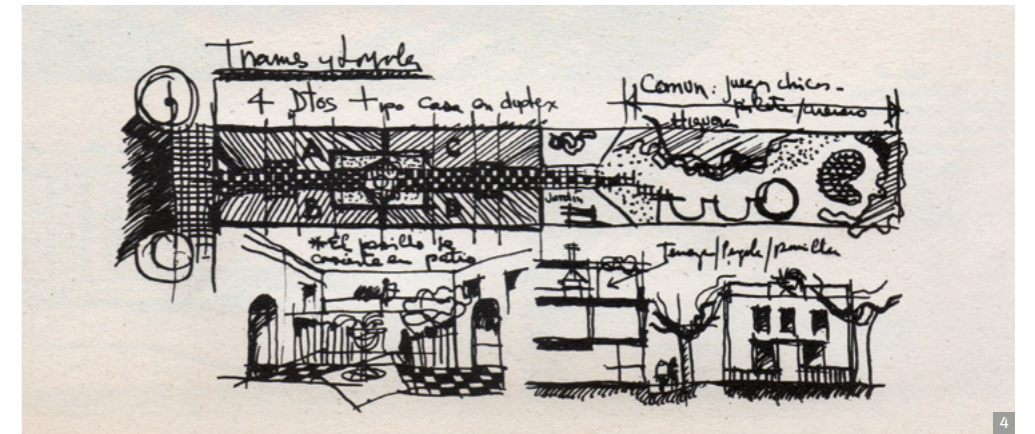 Thames y Loyola
4 Dtos tipo casa en duplex
Comun: juegos chicos -
pileta/crucero
Higuera
A
C
B
Jardin
* El pasillo se
convierte en patio
Terraza/Pergola/parrilla
4